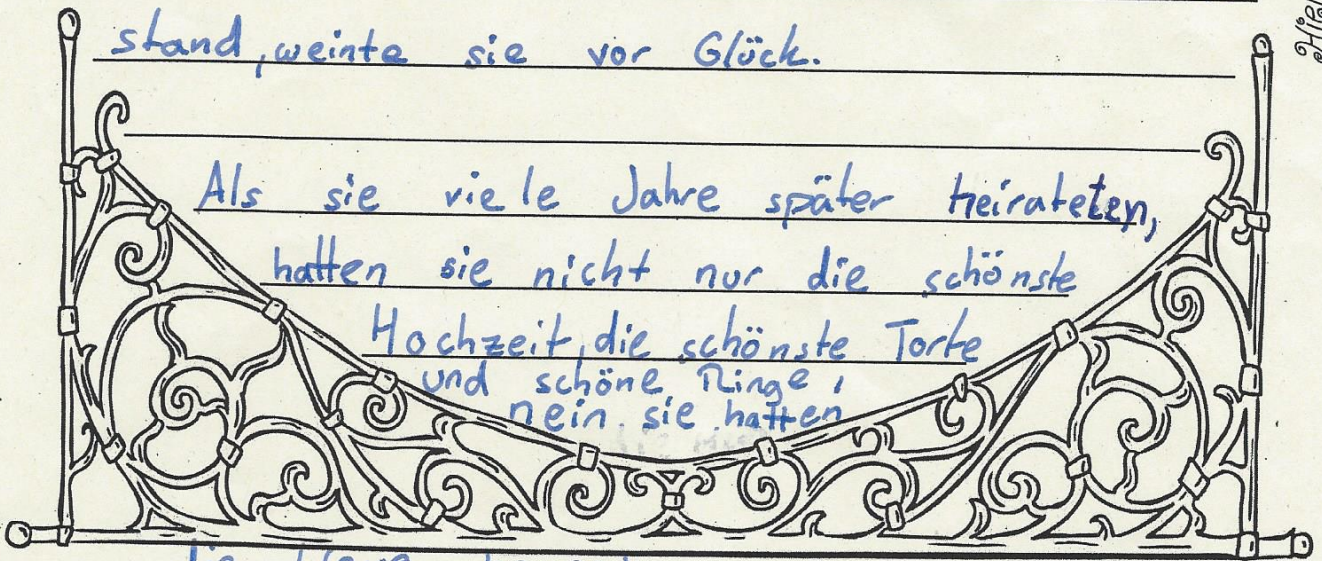 stand, weinte sie vor Glück.
Als sie viele Jahre später heirateten,
hatten sie nicht nur die schönste
Hochzeit, die schönste Torte
und schöne Ringe,
nein sie hatten